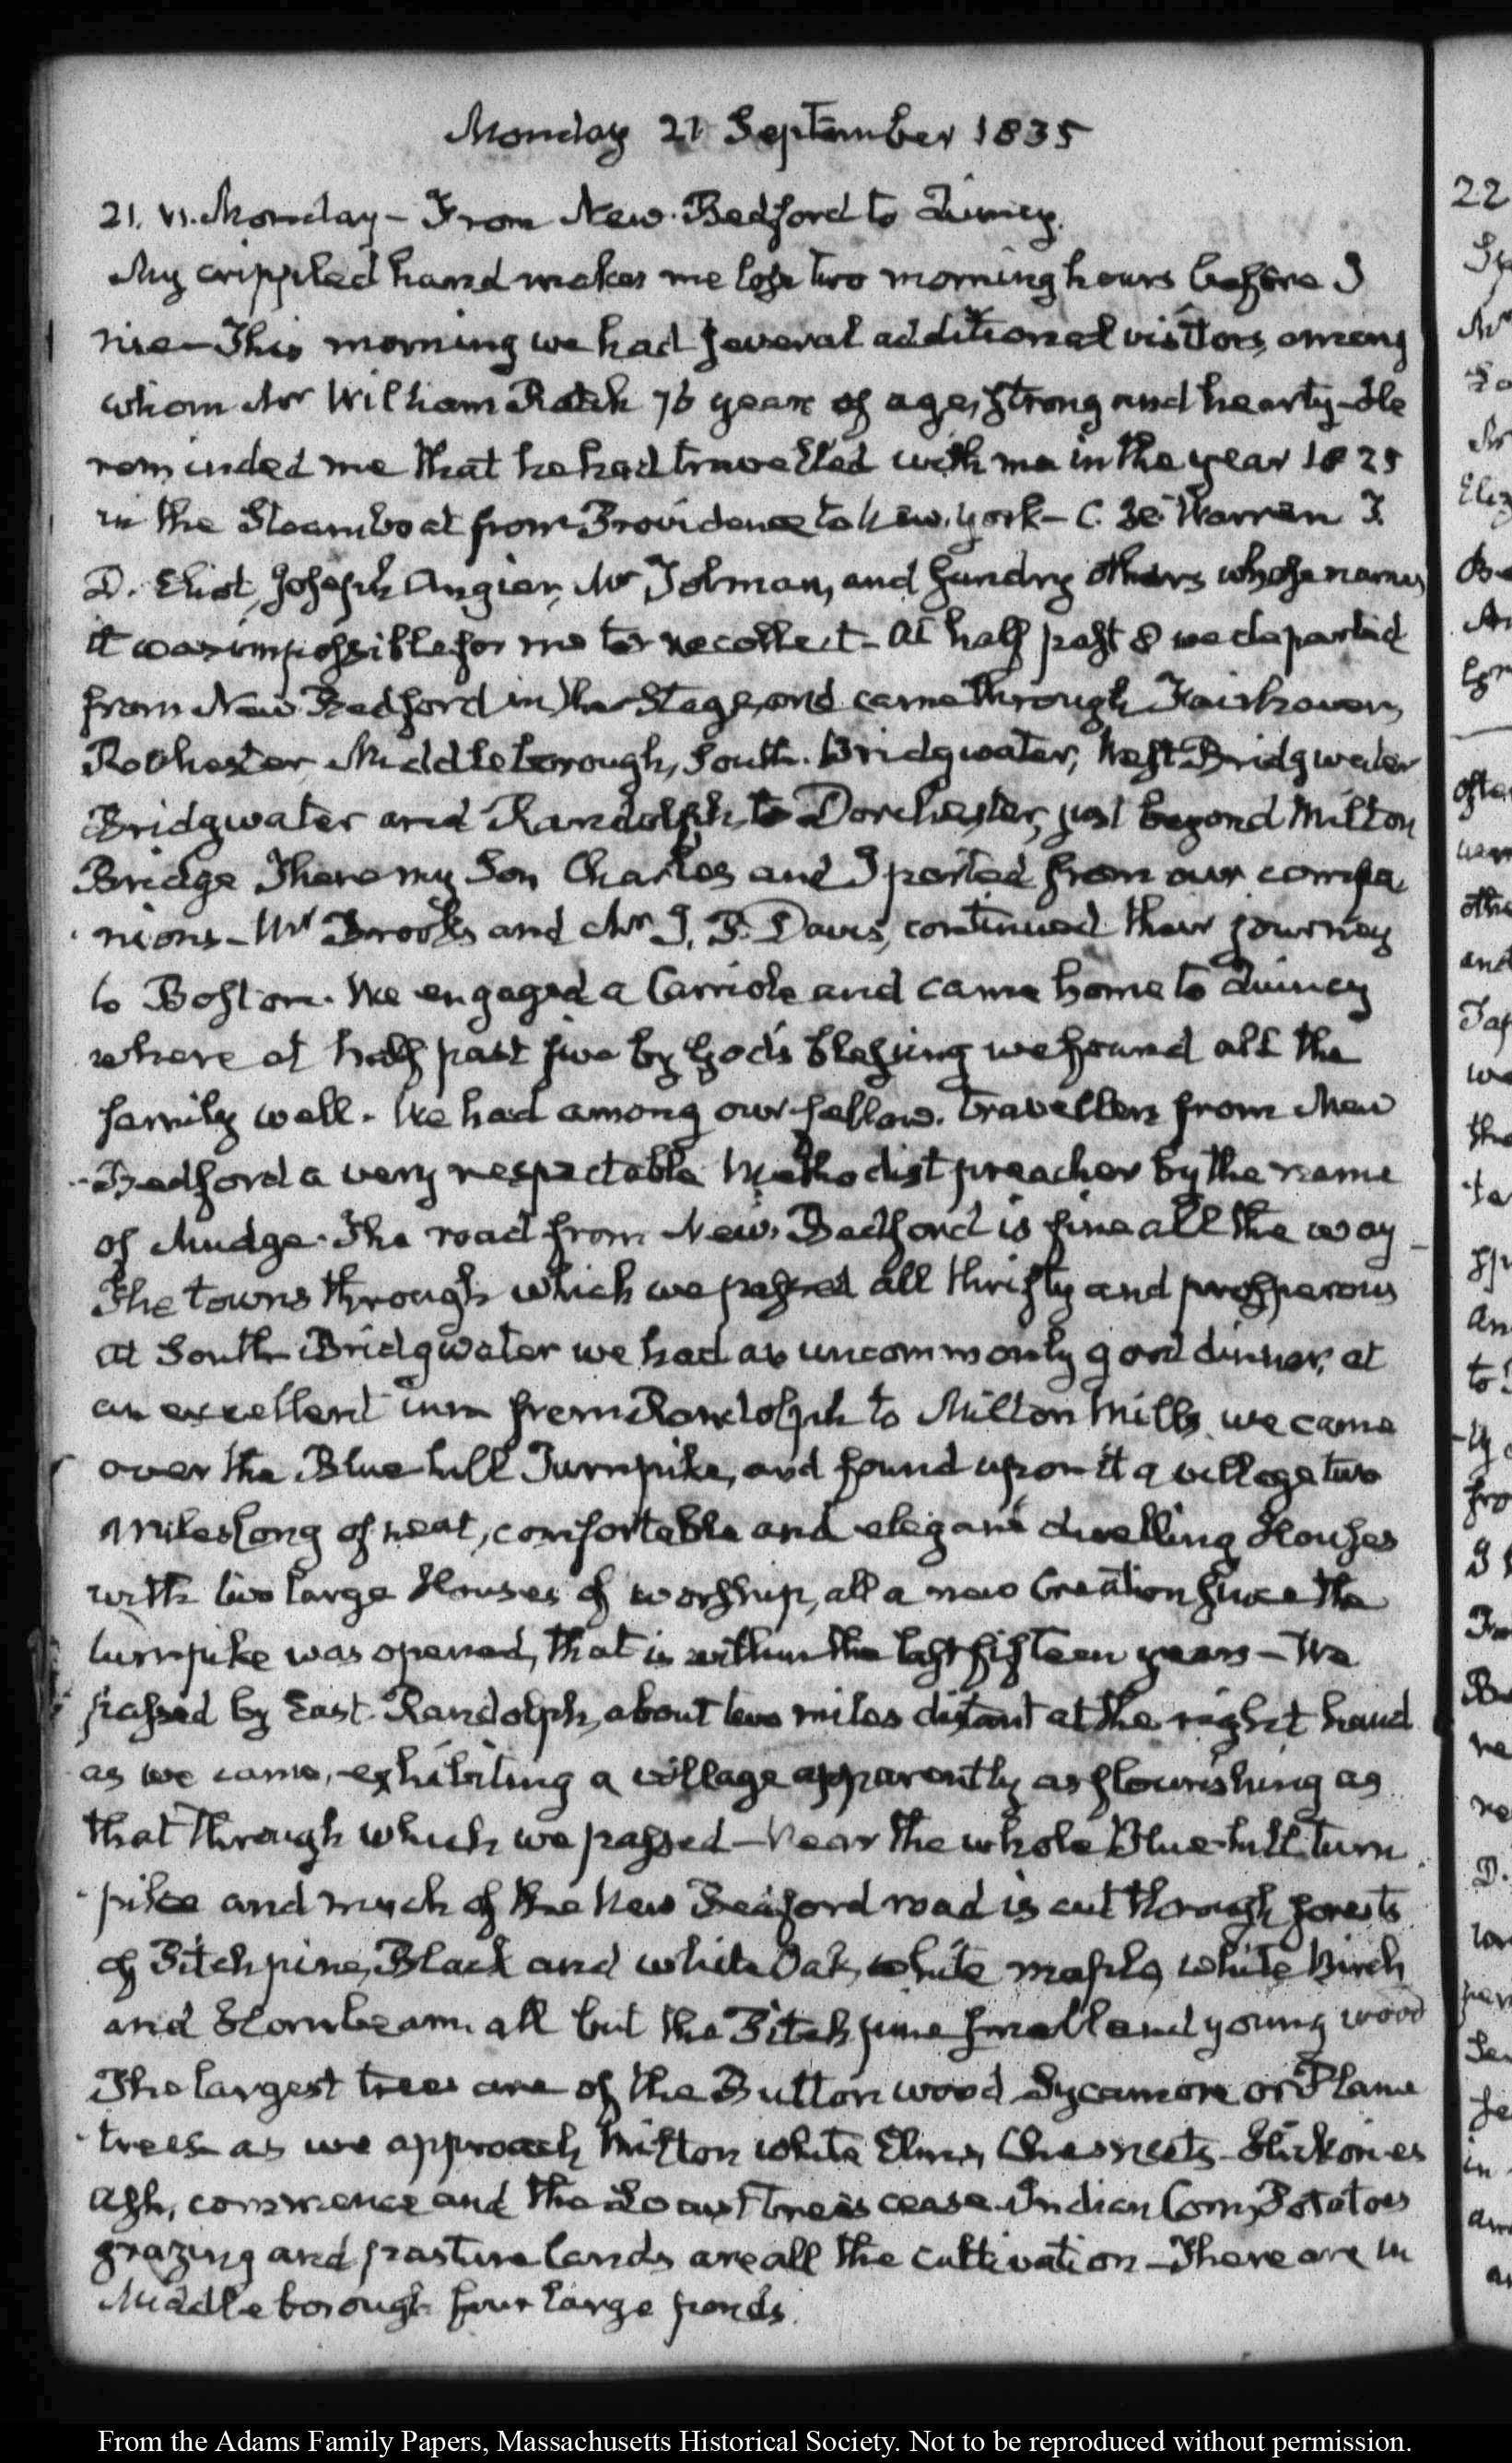 Monday 21 September 1835
21. VI. Monday - From New-Bedford to Quincy.
My crippled hand makes me lose two morning hours before I
rise - This morning we had several additional visitors, among
whom Mr William Rotch 76 years of age, strong and hearty - He
reminded me that he had travelled with me in the year 1825
in the Steamboat from Providence to New-York - C. Warren T.
D. Eliot, Joseph Angier, Mr Tolman, and sundry others whose names
it was impossible for me to recollect - At half past 8 we departed
from New Bedford in the Stage, and came through Fairhaven,
Rochester Middleborough, South-Bridgwater, West Bridgwater
Bridgwater and Randolph, to Dorchester, just beyond Milton
Bridge There my Son Charles and I parted from our compa-
nions - Mr Brooks and Mr I. P. Davis, continued their journey
to Boston. We engaged a Carriole and came home to Quincy
where at half past five by God's blessing we found all the
family well. We had among our fellow-travellers from New
Bedford a very respectable Methodist preacher by the name
of Mudge. The road from New-Bedford is fine all the way -
The towns through which we passed all thrifty and prosperous
At South-Bridgwater we had an uncommonly good dinner, at
an excellent inn from Randolph to Milton Mills, we came
over the Blue hill Turnpike, and found upon it a village two
miles long of neat, comfortable and elegant dwelling Houses
with two large Houses of worship, all a new Creation since the
turnpike was opened, that is within the last fifteen years - We
passed by East-Randolph, about two miles distant at the right hand
as we came, exhibiting a village apparently as flourishing as
that through which we passed - Near the whole Blue-hill turn
pike and much of the New Bedford road is cut through forests
of Pitch pine, Black and white Oak, white maple, white Birch
and Hornbeam all but the Pitch pine small and young wood
The largest trees are of the Button wood Sycamore or Plane
trees as we approach Milton white Elms, Chesnuts
Ash, commence and the Locust trees cease. Indian Corn, Potatoes
grazing and pasture lands are all the cultivation - There are in
Middleborough four large ponds.
22
From the Adams Family Papers, Massachusetts Historical Society. Not to be reproduced without permission.